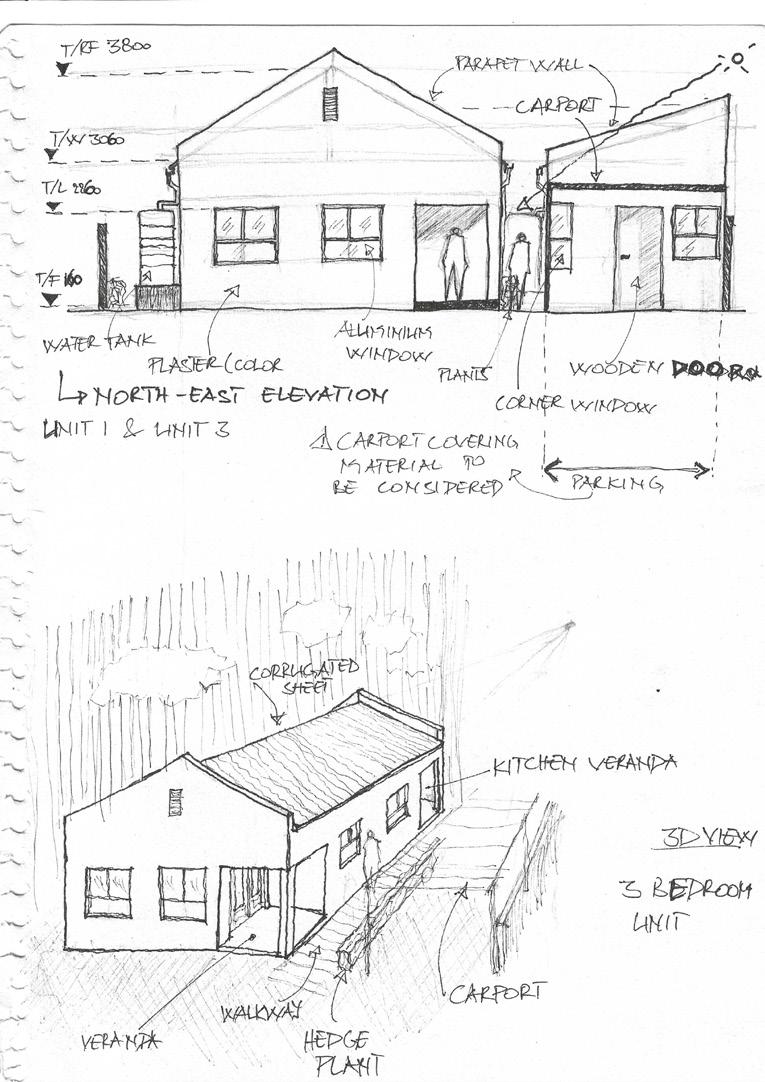 T/RF 3800
PARAPET WALL
CARPORT
T/W 3060
T/L 2260
T/F 160
WATER TANK
PLASTER/COLOR
ALUMINIUM
WINDOW
PLANTS
WOODEN DOOR
CORNER WINDOW
NORTH-EAST ELEVATION
UNIT 1 & UNIT 3
CARPORT COVERING
MATERIAL TO
BE CONSIDERED
PARKING
CORRUGATED
SHEET
KITCHEN VERANDA
3D VIEW
3 BEDROOM
UNIT
CARPORT
WALKWAY
VERANDA
HEDGE
PLANT